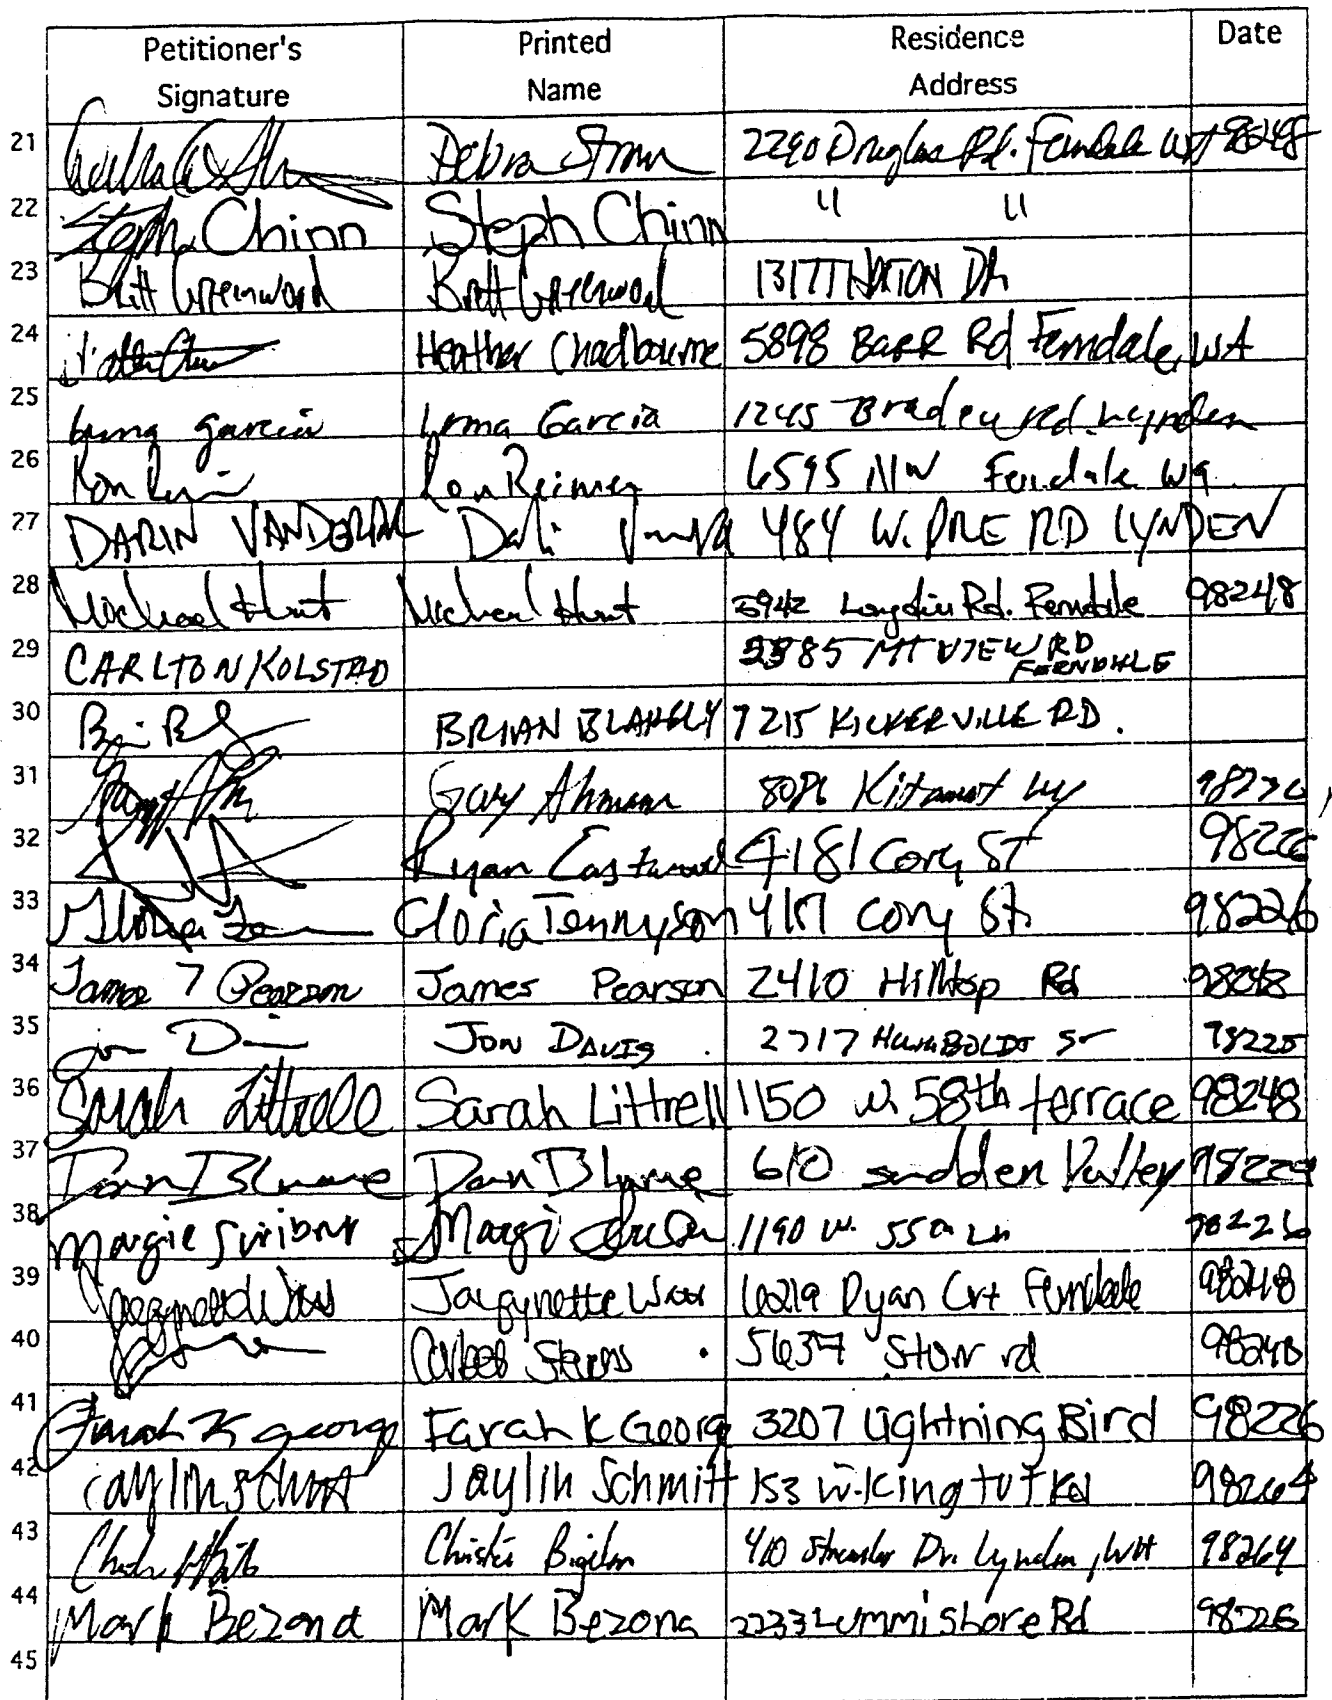 Petitioner's Signature Printed Name Residence Address Date
21 Debra 2290 Douglas Rd. Ferndale WA 98248
22 Steph Chinn Steph Chinn " "
23 Britt Greenwood Britt Greenwood 1317 THORTON DR
24 Heather Chadbourne 5898 BARR Rd Ferndale, WA
25 Irma Garcia Irma Garcia 1245 Bradley rd. Lynden
26 Ron Ron Reimer 6595 NW Ferndale Wa.
27 DARIN 484 W. POLE RD LYNDEN
28 Michael Hunt Michael Hunt 5942 Rd. Ferndale 98248
29 CARLTON KOLSTAD MT VIEW RD FERNDALE
30 BRIAN BLAKELY 7215 KICKERVILLE RD.
31 Gary Kitamat Wy
32 Ryan 4181 Cory ST 98226
33 Gloria Tennyson Cory St. 98226
34 James T Pearson James Pearson 2410 Hilltop Rd 98248
35 Jon D JON DAVIS 2717 HUMBOLDT ST 98225
36 Sarah Littrell Sarah Littrell 1150 w. 58th terrace 98248
37 Dan Blume Dan Blume 610 sudden Valley 98229
38 Margie 1190 W. 55th Ln 98226
39 Jacqynette Jacqynette 6219 Dyan Crt Ferndale 98248
40 5637 98248
41 Farah K George Farah K Georg 3207 Lightning Bird 98226
42 Jaylin Schmitt Jaylin Schmitt 153 W. King tut Rd 98264
43 410 Dr. Lynden, WA 98264
44 Mark Bezona Mark Bezona 2233 Lummi Shore Rd 98226
45